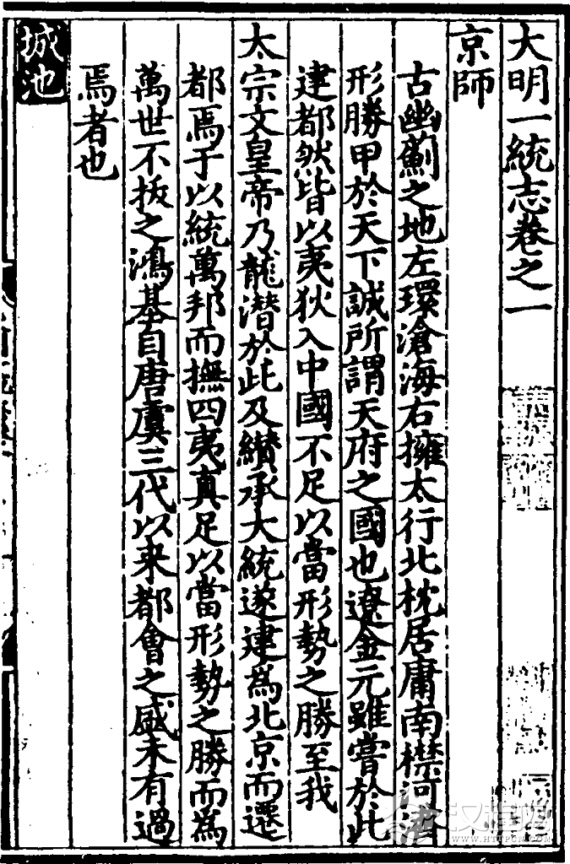 大明一統志卷之一
京師
古幽薊之地左環滄海右擁太行北枕居庸南襟河濟
形勝甲於天下誠所謂天府之國也遼金元雖嘗於此
建都然皆以夷狄入中國不足以當形勢之勝至我
太宗文皇帝乃龍潛於此及纉承大統遂建為北京而遷
都焉于以統萬邦而撫四夷真足以當形勢之勝而為
萬世不拔之鴻基自唐虞三代以来都會之盛未有過
焉者也
城池